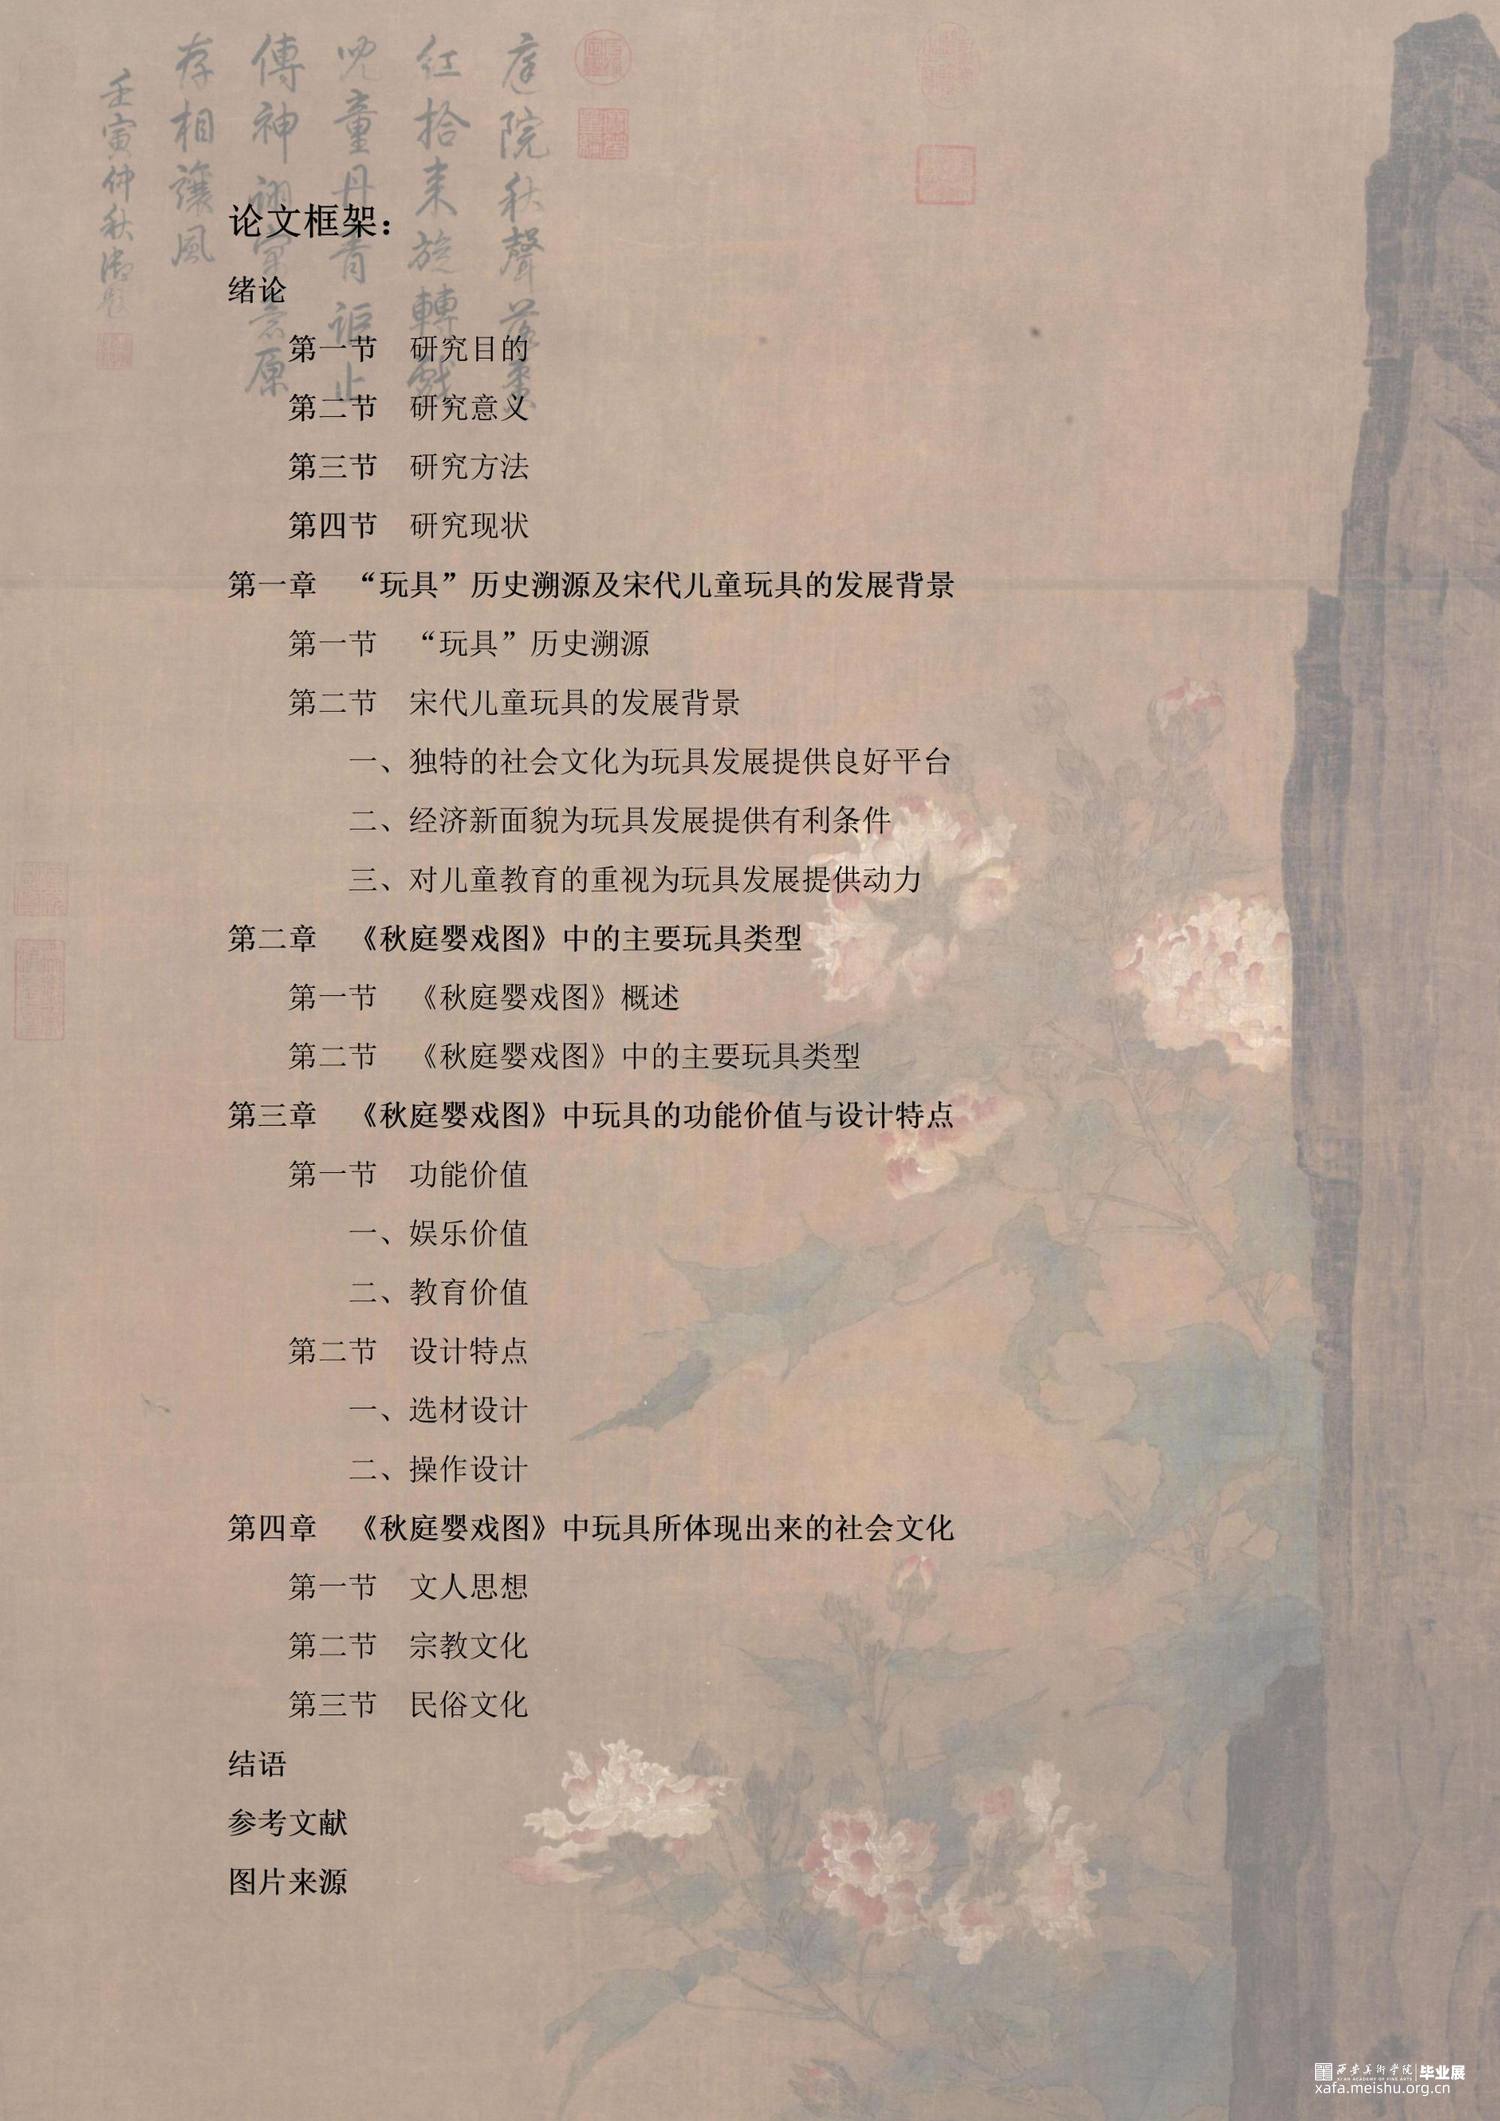 庭院秋聲落棗
红拾来旋轉戲
兒童丹青讵止
傳神詡寓意原
存相讓風
壬寅仲秋御题
论文框架：
绪论
第一节 研究目的
第二节 研究意义
第三节 研究方法
第四节 研究现状
第一章 “玩具”历史溯源及宋代儿童玩具的发展背景
第一节 “玩具”历史溯源
第二节 宋代儿童玩具的发展背景
一、独特的社会文化为玩具发展提供良好平台
二、经济新面貌为玩具发展提供有利条件
三、对儿童教育的重视为玩具发展提供动力
第二章 《秋庭婴戏图》中的主要玩具类型
第一节 《秋庭婴戏图》概述
第二节 《秋庭婴戏图》中的主要玩具类型
第三章 《秋庭婴戏图》中玩具的功能价值与设计特点
第一节 功能价值
一、娱乐价值
二、教育价值
第二节 设计特点
一、选材设计
二、操作设计
第四章 《秋庭婴戏图》中玩具所体现出来的社会文化
第一节 文人思想
第二节 宗教文化
第三节 民俗文化
结语
参考文献
图片来源
西安美術学院 毕业展
XI'AN ACADEMY OF FINE ARTS
xafa.meishu.org.cn